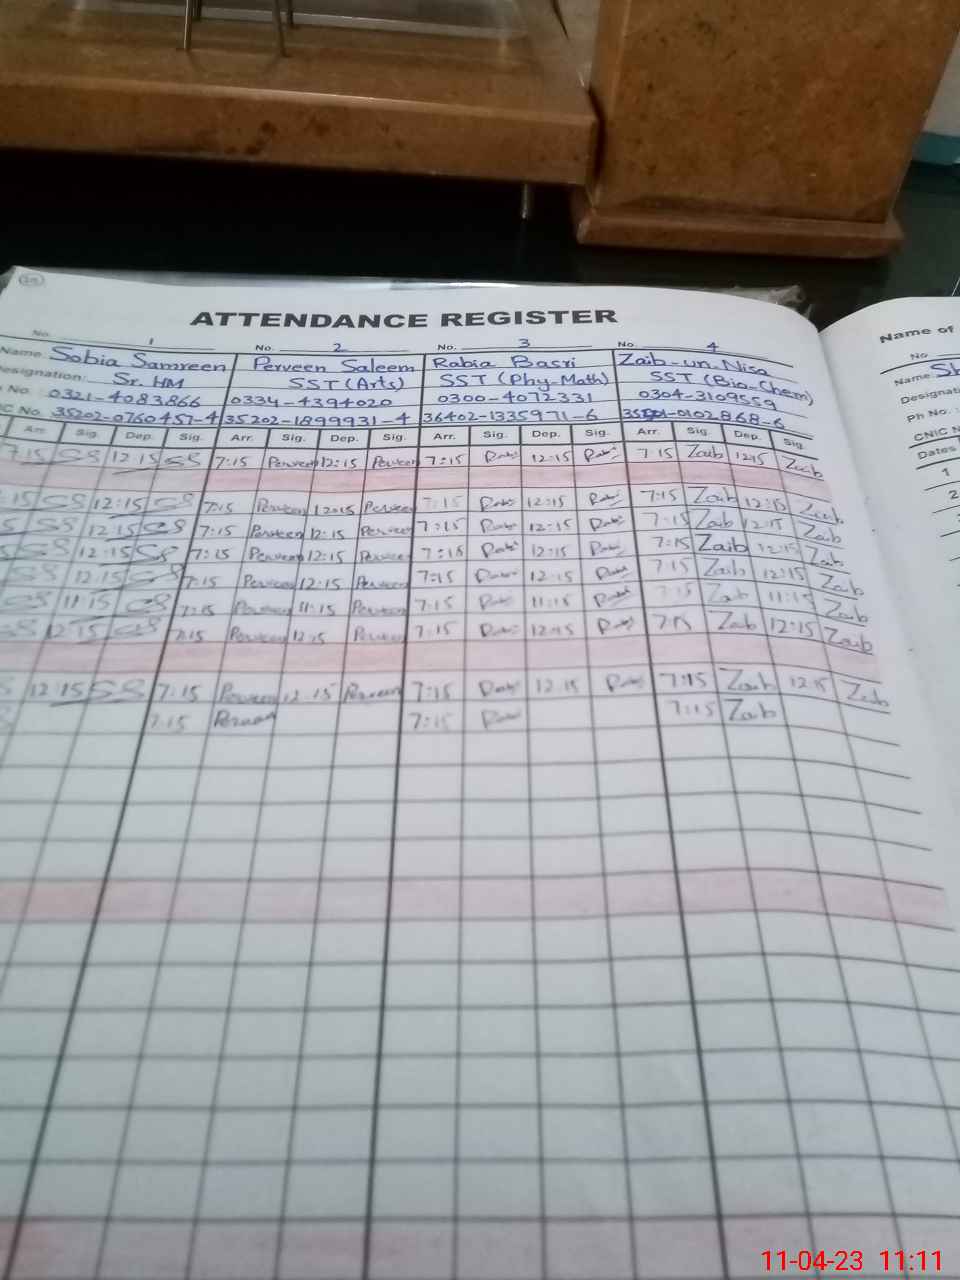 ATTENDANCE REGISTER
No. 1 No. 2 No. 3 No. 4
Name. Sobia Samreen Perveen Saleem Rabia Basri Zaib-un-Nisa
Designation: Sr. HM SST (Arts) SST (Phy-Math) SST (Bio-Chem)
No. 0321-4083866 0334-4394020 0300-4072331 0304-3109559
IC No. 35202-0760457-4 35202-1899931-4 36402-1335971-6 -0102868-6
Arr. Sig. Dep. Sig. Arr. Sig. Dep. Sig. Arr. Sig. Dep. Sig. Arr. Sig. Dep. Sig.
7:15 SS 12:15 SS 7:15 Perveen 12:15 Perveen 7:15 Rabi 12:15 Rabi 7:15 Zaib 12:15 Zaib
:15 SS 12:15 SS 7:15 Perveen 12:15 Perveen 7:15 Rabi 12:15 Rabi 7:15 Zaib 12:15 Zaib
5 SS 12:15 SS 7:15 Perveen 12:15 Perveen 7:15 Rabi 12:15 Rabi 7:15 Zaib 12:15 Zaib
SS 12:15 SS 7:15 Perveen 12:15 Perveen 7:15 Rabi 12:15 Rabi 7:15 Zaib 12:15 Zaib
SS 12:15 SS 7:15 Perveen 12:15 Perveen 7:15 Rabi 12:15 Rabi 7:15 Zaib 12:15 Zaib
SS 11:15 SS 7:15 Perveen 11:15 Perveen 7:15 Rabi 11:15 Rabi 7:15 Zaib 11:15 Zaib
SS 12:15 SS 7:15 Perveen 12:15 Perveen 7:15 Rabi 12:15 Rabi 7:15 Zaib 12:15 Zaib
S 12:15 SS 7:15 Perveen 12:15 Perveen 7:15 Rabi 12:15 Rabi 7:15 Zaib 12:15 Zaib
7:15 Perveen 7:15 Rabi 7:15 Zaib
Name of
No
Name. Sh
Designati
Ph No. :
CNIC N
Dates
1
2
11-04-23 11:11